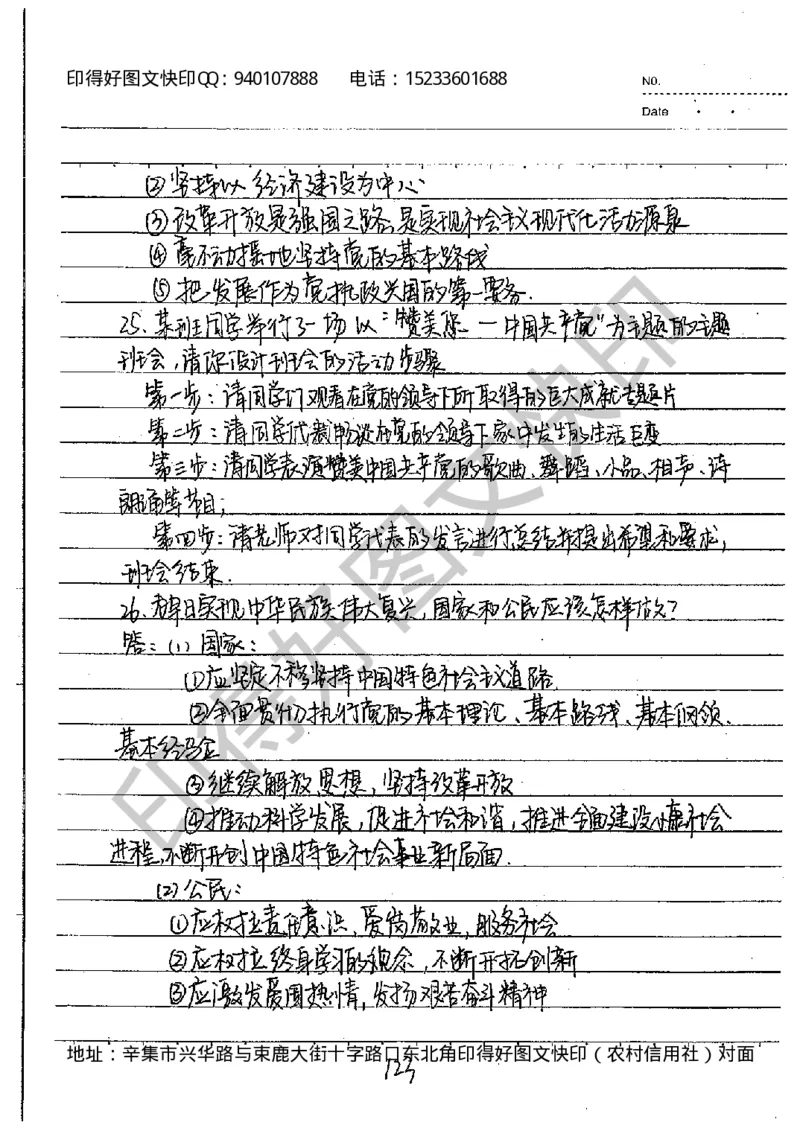 印得好图文快印QQ：940107888 电话：15233601688
NO.
Date
②坚持以经济建设为中心
③改革开放是强国之路、是实现社会主义现代化活力源泉
④毫不动摇地坚持党的基本路线
⑤把发展作为党执政兴国的第一要务.
25. 某班同学举行了一场以“赞美您—中国共产党”为主题的主题
班会，请你设计班会的活动步骤
第一步：请同学们观看在党的领导下所取得的巨大成就专题片
第二步：请同学代表畅谈在党的领导下家中发生的生活巨变
第三步：请同学表演赞美中国共产党的歌曲、舞蹈、小品、相声、诗
朗诵等节目；
第四步：请老师对同学代表的发言进行总结并提出希望和要求，
班会结束.
26. 为早日实现中华民族伟大复兴，国家和公民应该怎样做？
答：（1）国家：
①应坚定不移坚持中国特色社会主义道路
②全面贯彻执行党的基本理论、基本路线、基本纲领、
基本经验
③继续解放思想，坚持改革开放
④推动科学发展，促进社会和谐，推进全面建设小康社会
进程，不断开创中国特色社会事业新局面.
（2）公民：
①应树立责任意识，爱岗敬业，服务社会
②应树立终身学习的观念，不断开拓创新
③应激发爱国热情，发扬艰苦奋斗精神
印得好图文快印
地址：辛集市兴华路与束鹿大街十字路口东北角印得好图文快印（农村信用社）对面
123